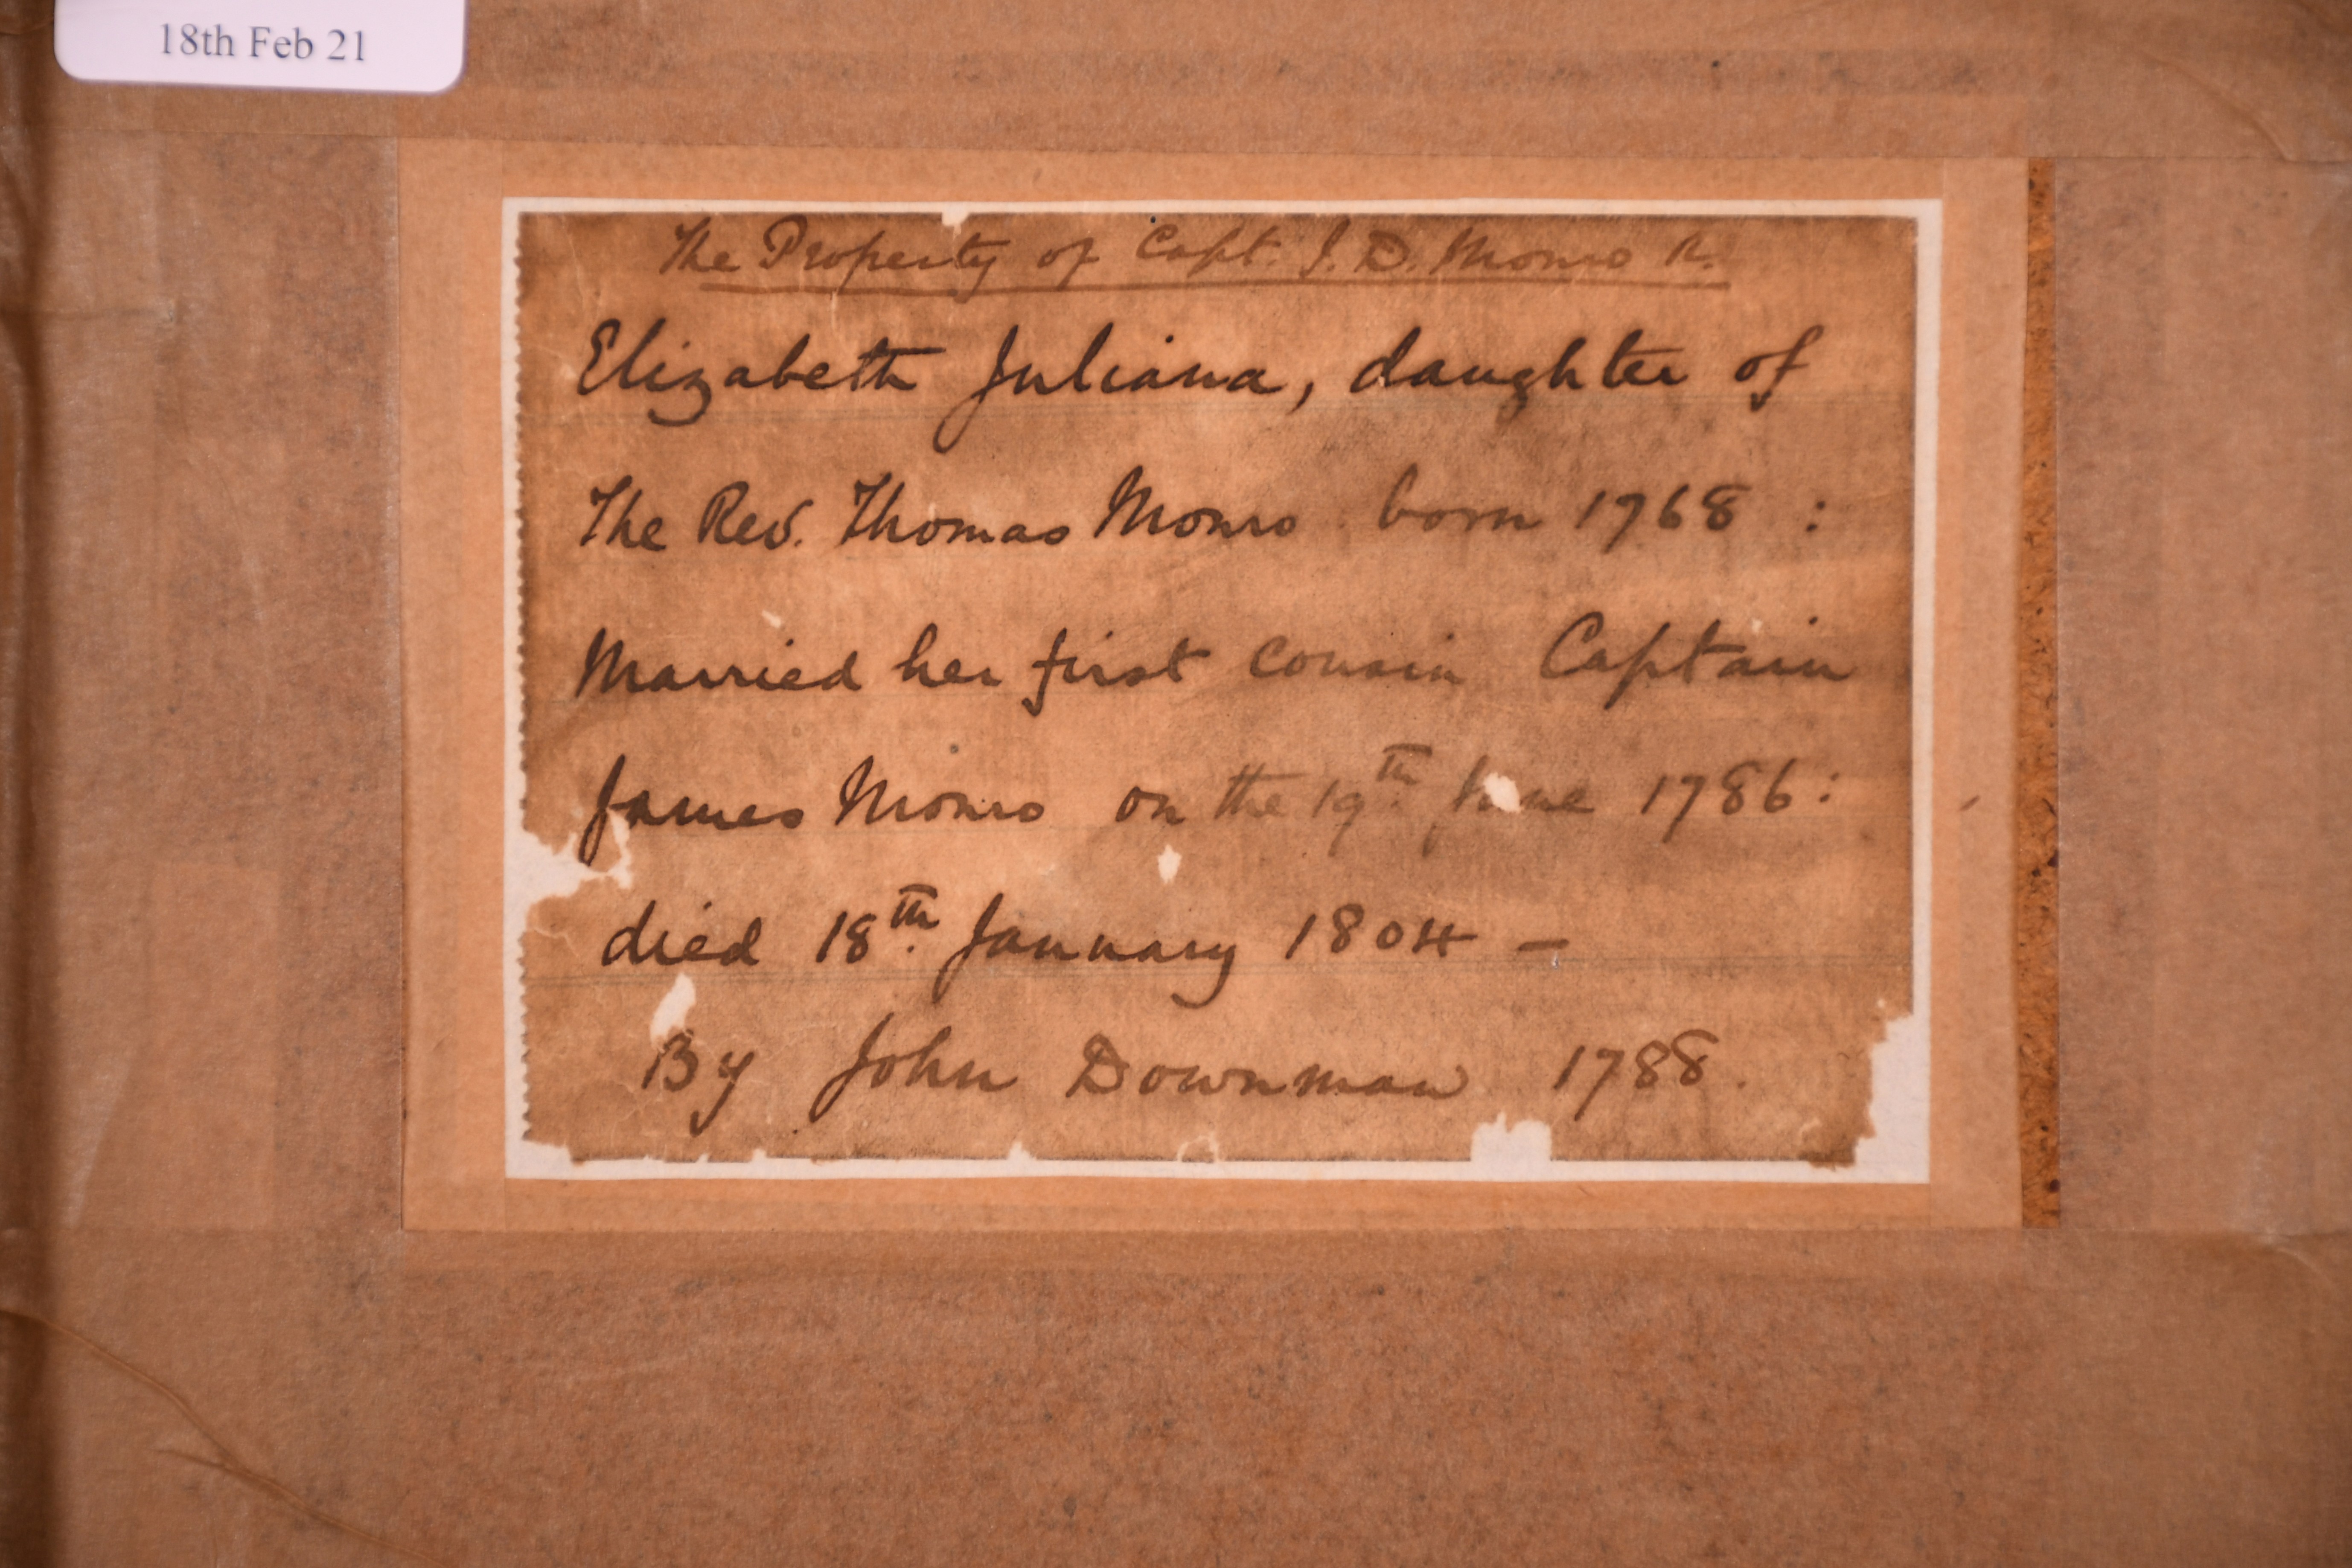 18th Feb 21
The Property of Capt. J. D. Monro R.
Elizabeth Juliana, daughter of
The Rev. Thomas Monro born 1768 :
Married her first cousin Captain
James Monro on the 19th June 1786:
died 18th January 1804 –
By John Downman 1788.